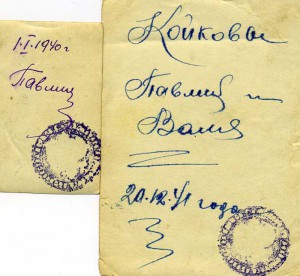 1.I.1940 г
Павлик
Койковы
Павлик и
Валя
20.12.41 года